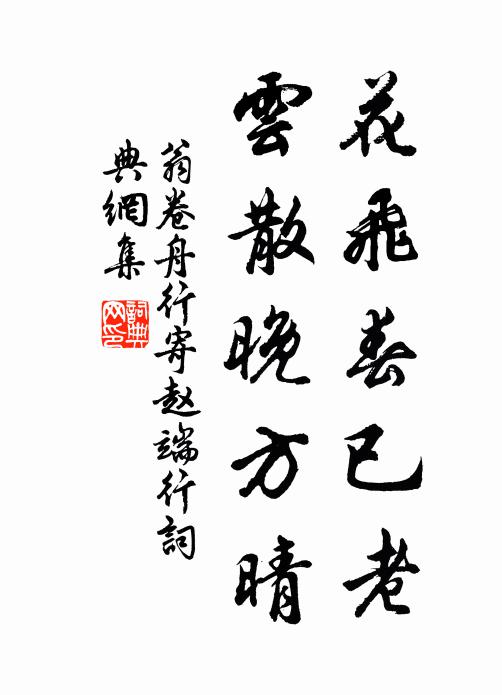 花飛春已老
雲散晚方晴
翁卷舟行寄赵端行詞
典網集
詞典
网印